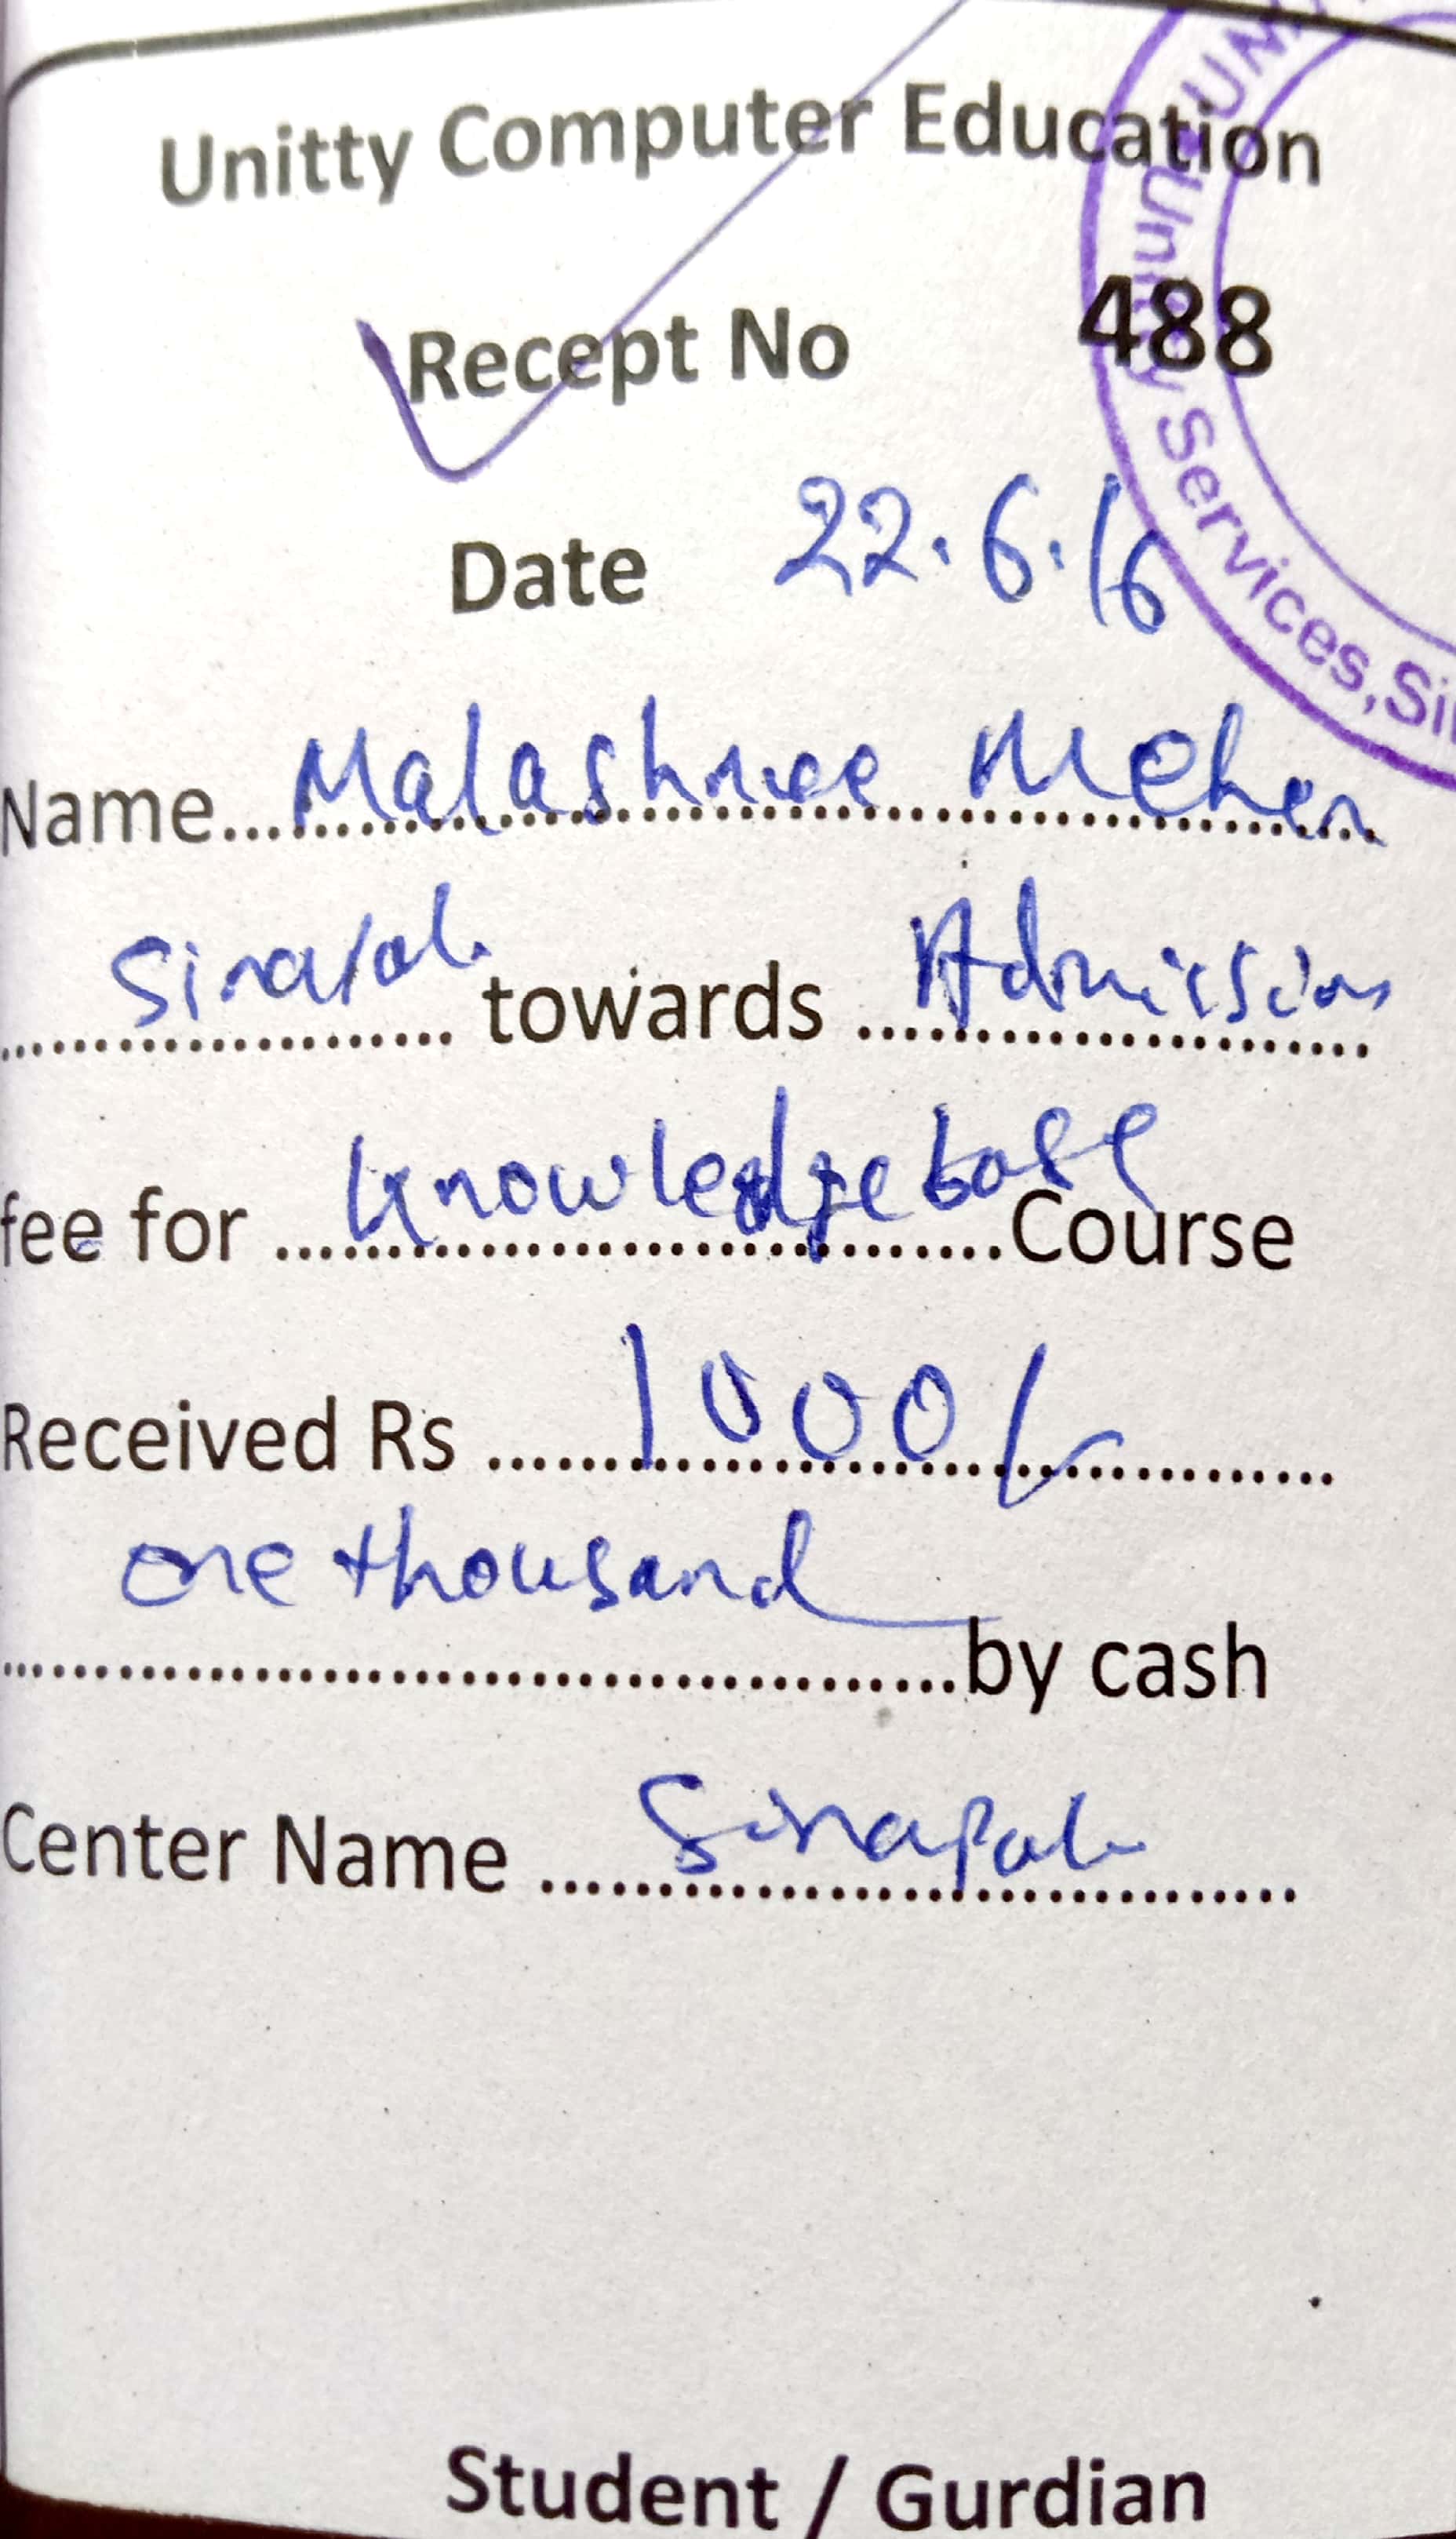 Unitty Computer Education
Recept No 488
Date 22.6.16
Name... Malashree Meher
Sinapali towards ... Admission
fee for ... Knowledge base Course
Received Rs ... 1000/-
one thousand
... by cash
Center Name ... Sinapali
Student / Gurdian
Unity Services, Si